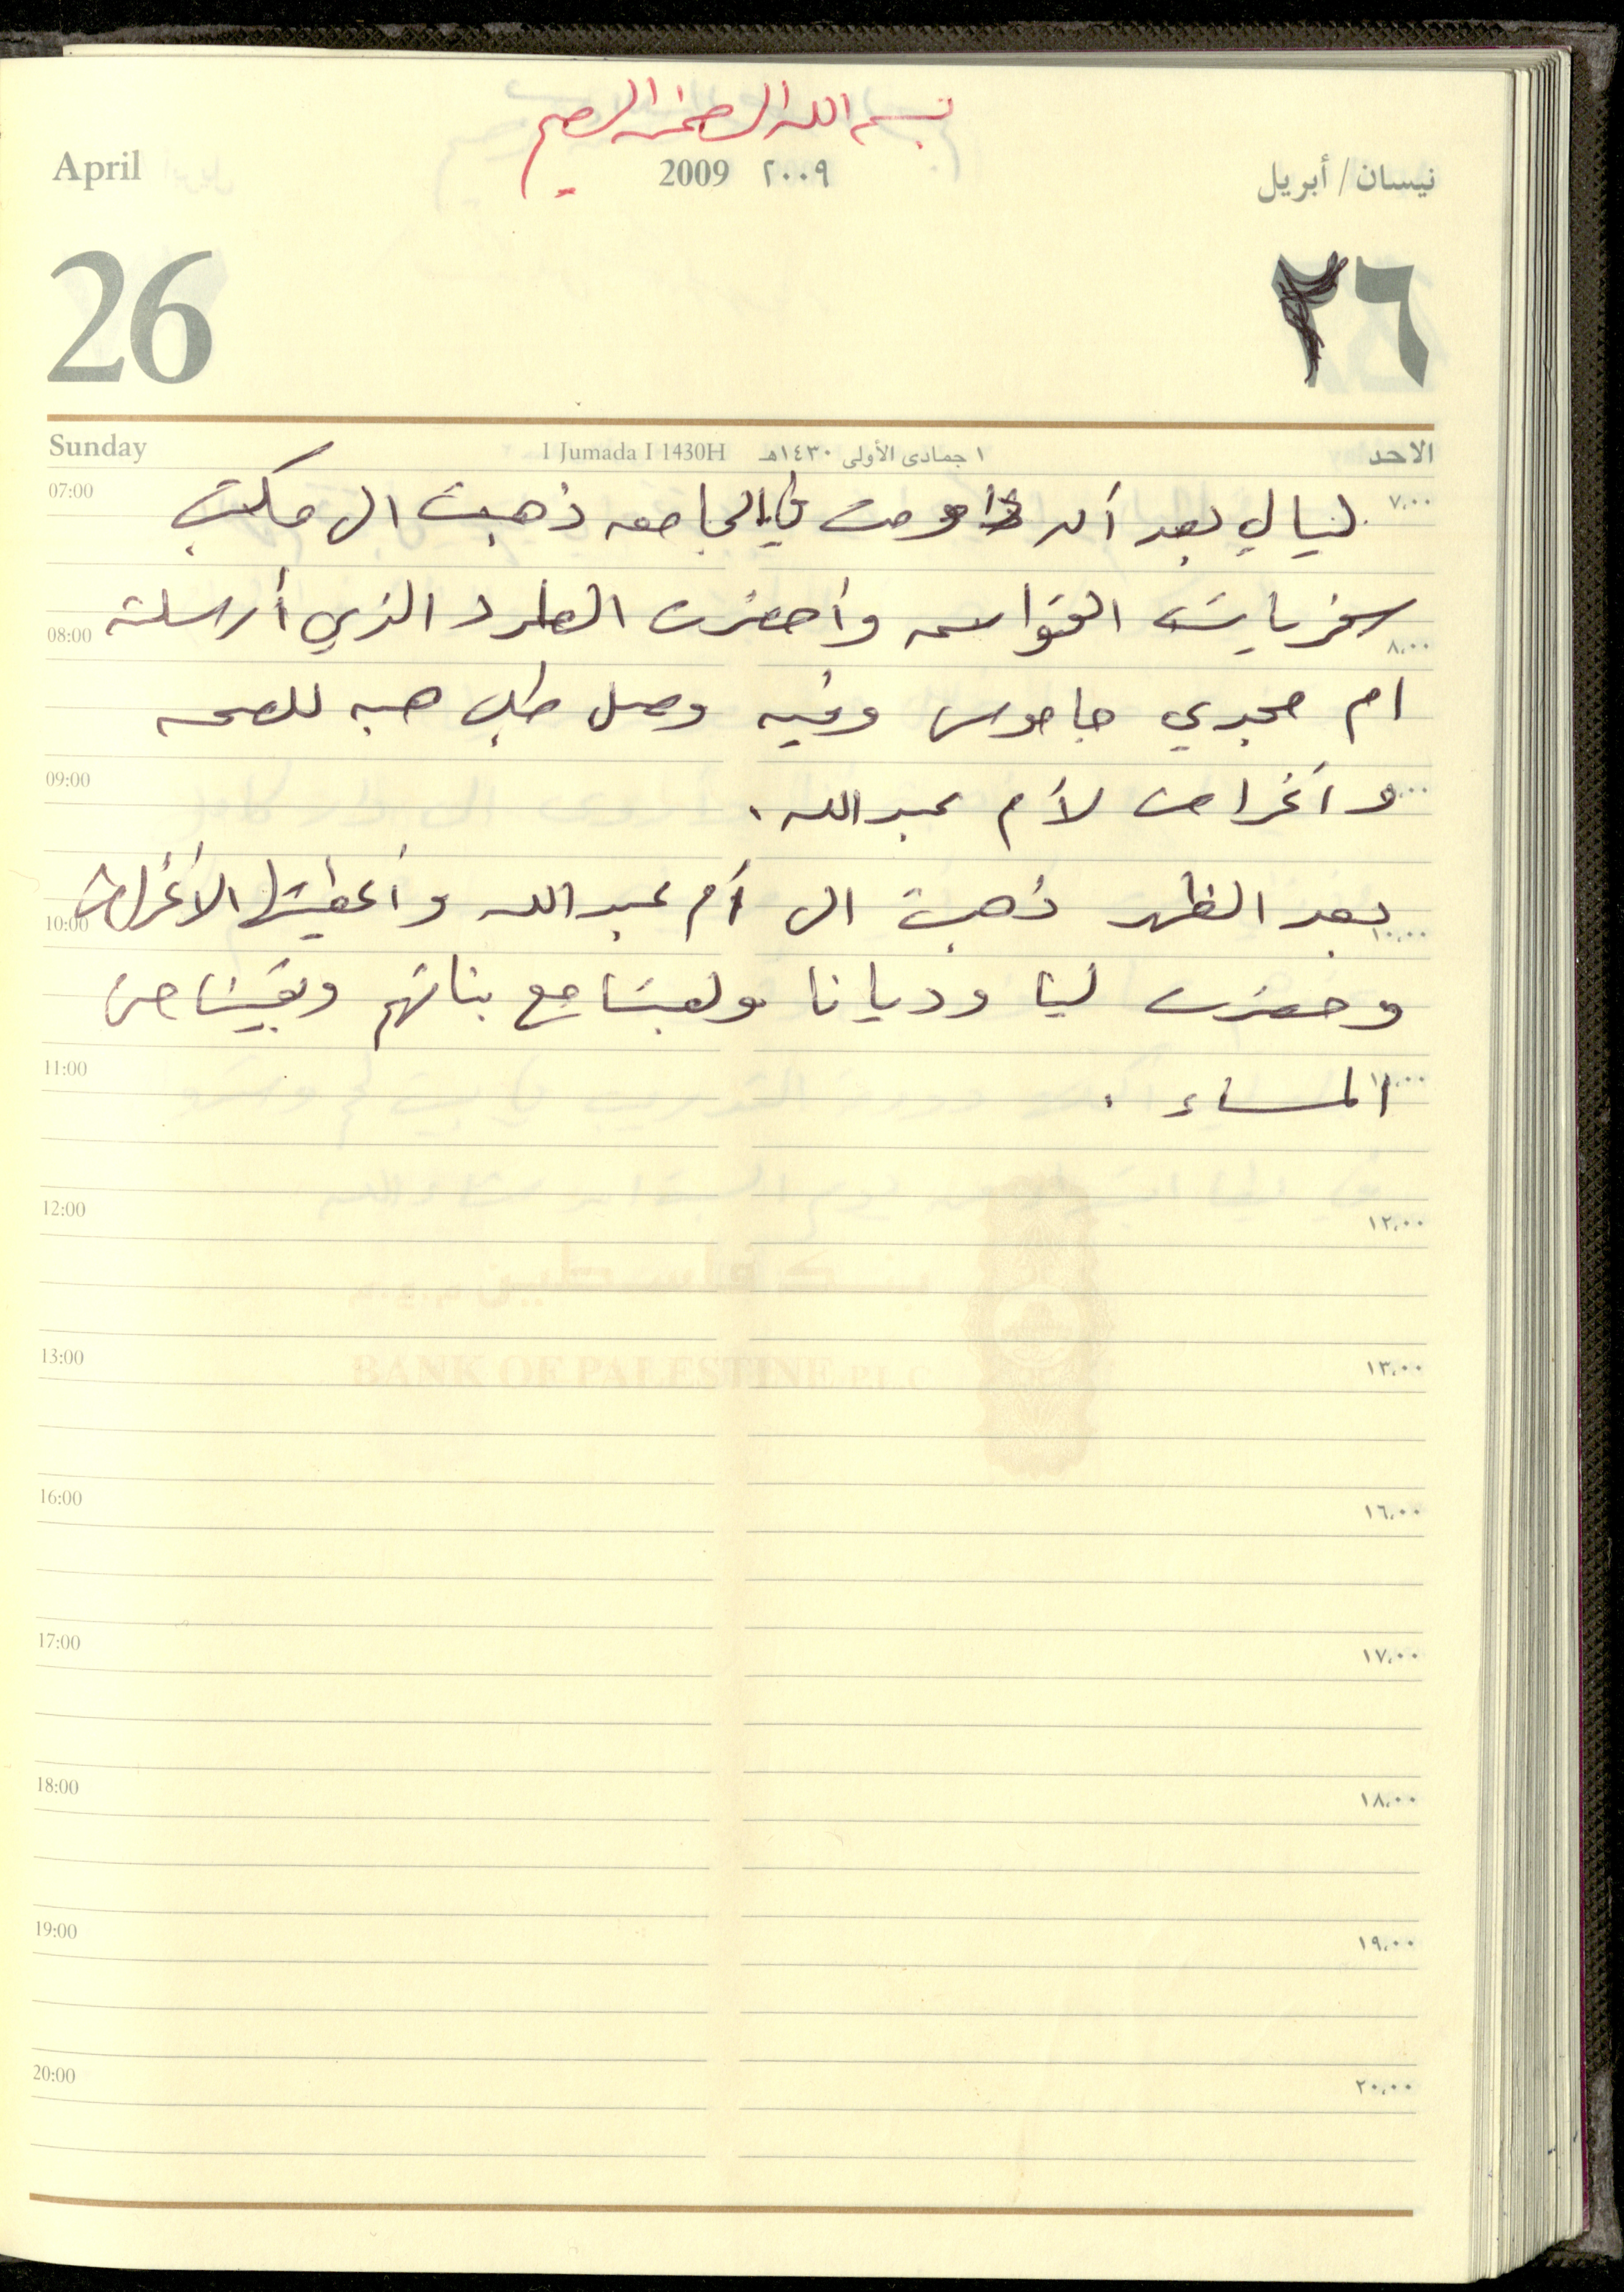 بسم الله الرحمن الرحيم
April 2009 ٢٠٠٩ نيسان / أبريل
26 ٢٦
Sunday 1 Jumada I 1430H ١ جمادى الأولى ١٤٣٠هـ الاحد
07:00 ٧،٠٠
ليالي بعد أن داومت في الجامعه ذهبت الى مكتب
سفريات القواسمه وأحضرت الطرد الذي أرسلته
08:00 ٨،٠٠
ام مجدي جاموس وفيه وصل طلب هبه للصحه
09:00 ٩،٠٠
و أغراض لأم عبدالله .
بعد الظهر ذهبت الى أم عبدالله وأعطيتها الأغراض
10:00 ١٠،٠٠
وحضرت لينا وديانا ولعبنا مع بناتهم وبقينا حتى
11:00 ١١،٠٠
المساء .
12:00 ١٢،٠٠
بنك فلسطين م.ع.م
13:00 ١٣،٠٠
BANK OF PALESTINE P.L.C
16:00 ١٦،٠٠
17:00 ١٧،٠٠
18:00 ١٨،٠٠
19:00 ١٩،٠٠
20:00 ٢٠،٠٠